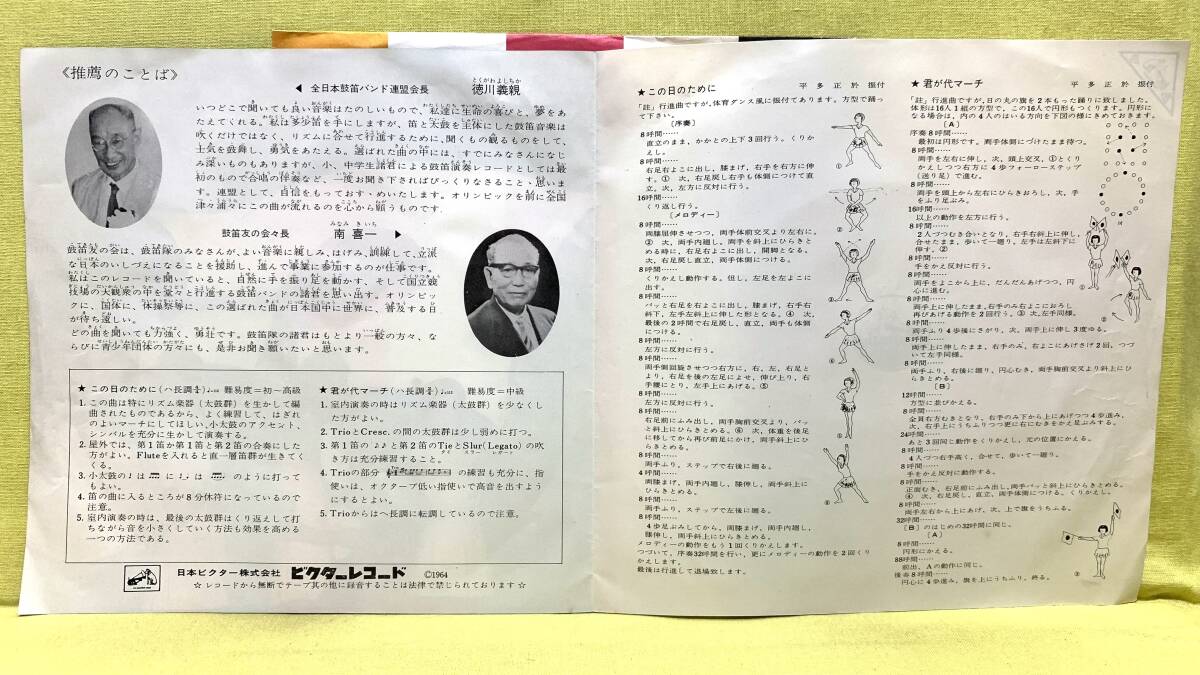 《推薦のことば》
◀ 全日本鼓笛バンド連盟会長 徳川義親
とくがわよしちか
いつどこで聞いても良い音楽はたのしいもので、私達に生命の喜びと、夢をあ
たえてくれる。私は多少笛を手にしますが、笛と太鼓を主体にした鼓笛音楽は
吹くだけではなく、リズムに合せて行進するために、聞くもの観るものをして、
士気を鼓舞し、勇気をあたえる。選ばれた曲の中には、すでにみなさんになじ
み深いものもありますが、小、中学生諸君による鼓笛演奏レコードとしては最
初のもので合唱の伴奏など、一度お聞き下されればびっくりなさること、思いま
す。連盟として、自信をもっておすゝめいたします。オリンピックを前に全国
津々浦々にこの曲が流れるのを心から願うものです.
鼓笛友の会々長 南 喜一 ▶
みなみ きいち
鼓笛友の会は、鼓笛隊のみなさんが、よい音楽に親しみ、はげみ、訓練して、立派
な日本のいしづえになることを援助し、進んで事業に参加するのが仕事です。
私はこのレコードを聞いていると、自然に手を振り足を動かす、そして国立競
技場の大観衆の中を堂々と行進する鼓笛バンドの諸君を思い出す。オリンピッ
クに、国体に、体操祭等に、この選ばれた曲が日本国中に世界に、普及する日
が待ち遠しい。
どの曲を聞いても力強く、勇壮です。鼓笛隊の諸君はもとより一般の方々、な
らびに青少年団体の方々にも、是非お聞き願いたいと思います。
★ この日のために(ハ長調) 難易度＝初～高級
1. この曲は特にリズム楽器(太鼓群)を生かして編
曲されたものであるから、よく練習して、はぎれ
のよいマーチにしてほしい、小太鼓のアクセント、
シンバルを充分に生かして演奏する。
2. 屋外では、第1笛か第1笛と第2笛の合奏にした
方がよい。Fluteを入れると直一層笛群が生きてく
くる。
3. 小太鼓の♩は は のように打って
もよい。
4. 笛の曲に入るところが8分休符になっているので
注意。
5. 室内演奏の時は、最後の太鼓群はくり返えして打
ちながら音を小さくしていく方法も効果を高める
一つの方法である。
★ 君が代マーチ(ハ長調) 難易度＝中級
1. 室内演奏の時はリズム楽器(太鼓群)を少なくし
た方がよい。
2. TrioとCresc.の間の太鼓群は少し弱めに打つ。
3. 第1笛の♪♪と第2笛のTieとSlur(Legato)の吹
タイ スラー レガート
き方は充分練習すること。
4. Trioの部分 の練習も充分に、指
使いは、オクターブ低い指使いで高音を出すよう
にするとよい。
5. Trioからはヘ長調に転調しているので注意。
日本ビクター株式会社 ビクターレコード Ⓒ1964
☆ レコードから無断でテープ其の他に録音することは法律で禁じられております ☆
★ この日のために 平 多 正 於 振付
「註」行進曲ですが、体育ダンス風に振付てあります。方型で踊っ
て下さい。
〔序奏〕
8呼間……
直立のまま、かかとの上下3回行う。くりか
えし。
8呼間……
右足右よこに出し、膝まげ、右手を右方に伸
す。① 次、右足戻し右手も体側につけて直
立。次、左方に反対に行う。
16呼間……
くり返し行う。
〔メロディー〕
8呼間……
両膝屈伸させつつ、両手体前交叉より左右に。
② 次、両手内廻し、両手を斜上にひらきと
める時に、右足右よこに出し、開脚する。③
次、右足戻し直立、両手体側につける。
8呼間……
くりかえし動作する。但し、左足を左よこに
出す。
8呼間……
パッと右足を右よこに出し、膝まげ、右手右
斜下、左手左斜上に伸した形となる。④ 次、
最後の2呼間で右足戻し、直立、両手も体側
につける。
8呼間……
左方に反対に行う。
8呼間……
両手側回旋させつつ右方に、右、左、右足と
より、右足を後の左足によせ、伸び上り、右
手腰にとり、左手上にあげる。⑤
8呼間……
左方に反対に行う。
8呼間……
右足前にふみ出し、両手胸前交叉より、パッ
と斜上にひらきとめる。⑥ 次、体重を後足
に移してから再び前足にかけ、両手斜上にひ
らきとめる。
8呼間……
両手ふり、ステップで右後に廻る。
4呼間……
両膝まげ、両手内廻し、膝伸し、両手斜上に
ひらきとめる。
8呼間……
両手ふり、ステップで左後に廻る。
8呼間……
4歩足ぶみしてから、両膝まげ、両手内廻し、
膝伸し、両手斜上にひらきとめる。
メロディーの動作をもう1回くりかえします。
つづいて、序奏32呼間を行い、更にメロディーの動作を2回くり
かえします。
最後は行進して退場致します。
①
②
③
④
⑤
⑥
★ 君が代マーチ 平 多 正 於 振付
「註」行進曲ですが、日の丸の旗を2本もった踊りに致しました。
体形は16人1組の方型で、この16人で円形もつくります。円形に
なる場合は、内の4人のはいる方向を下図の様にきめておきます。
〔A〕
序奏8呼間……
最初は円形です。両手体側につけたまま待つ。
8呼間……
両手を左右に伸し、次、頭上交叉、①とくり
かえしつつ右方に4歩フォーローステップ
(送り足)で進む。
8呼間……
両手を頭上から左右にひらきおろし、次、手
をふり足ぶみ。
16呼間……
以上の動作を左方に行う。
8呼間……
2人づつむき合いとなり、右手右斜上に伸し
合せたまま、歩いて一廻り、左手は左斜下に
伸す。②
8呼間……
手をかえ反対に行う。
8呼間……
両手をよこから上に、だんだんあげつつ、円
心に進む。
8呼間……
両手上に伸したまま、右手のみ右よこにおろし
再びあげる動作を2回行う。③ 次、左手同様。
8呼間……
両手ふり4歩後にさがり、次、両手上に伸し3度ゆる。
8呼間……
両手上に伸したまま、右手のみ、右よこにあげさげ2回。つづ
いて左手同様。
8呼間……
両手ふり、右後に廻り、円心むき、両手胸前交叉より斜上にひ
らきとめる。
〔B〕
12呼間……
方型に並びかえる。
8呼間……
全員右方むきとなり、右手のみ下から上にあげつつ4歩進み、
次、右手上にうちふりつつ更に右にむきをかえ足ぶみする。
24呼間……
あと3回同じ動作をくりかえし、元の位置にかえる。
8呼間……
4人づつ右手高く、合せて、歩いて一廻り。
8呼間……
手をかえ反対に動作する。
8呼間……
正面むき、右足前にふみ出し、両手パッと斜上にひらきとめる。
④ 次、右足戻し、直立、両手体側につける。くりかえし。
8呼間……
両手左右から上にあげ、次、上で旗をうちふる。
32呼間……
〔B〕のはじめの32呼間に同じ。
〔A〕
8呼間……
円形にかえる。
88呼間……
前出、Aの動作に同じ。
後奏8呼間……
円心に4歩進み、旗を上にうちふり、終る。